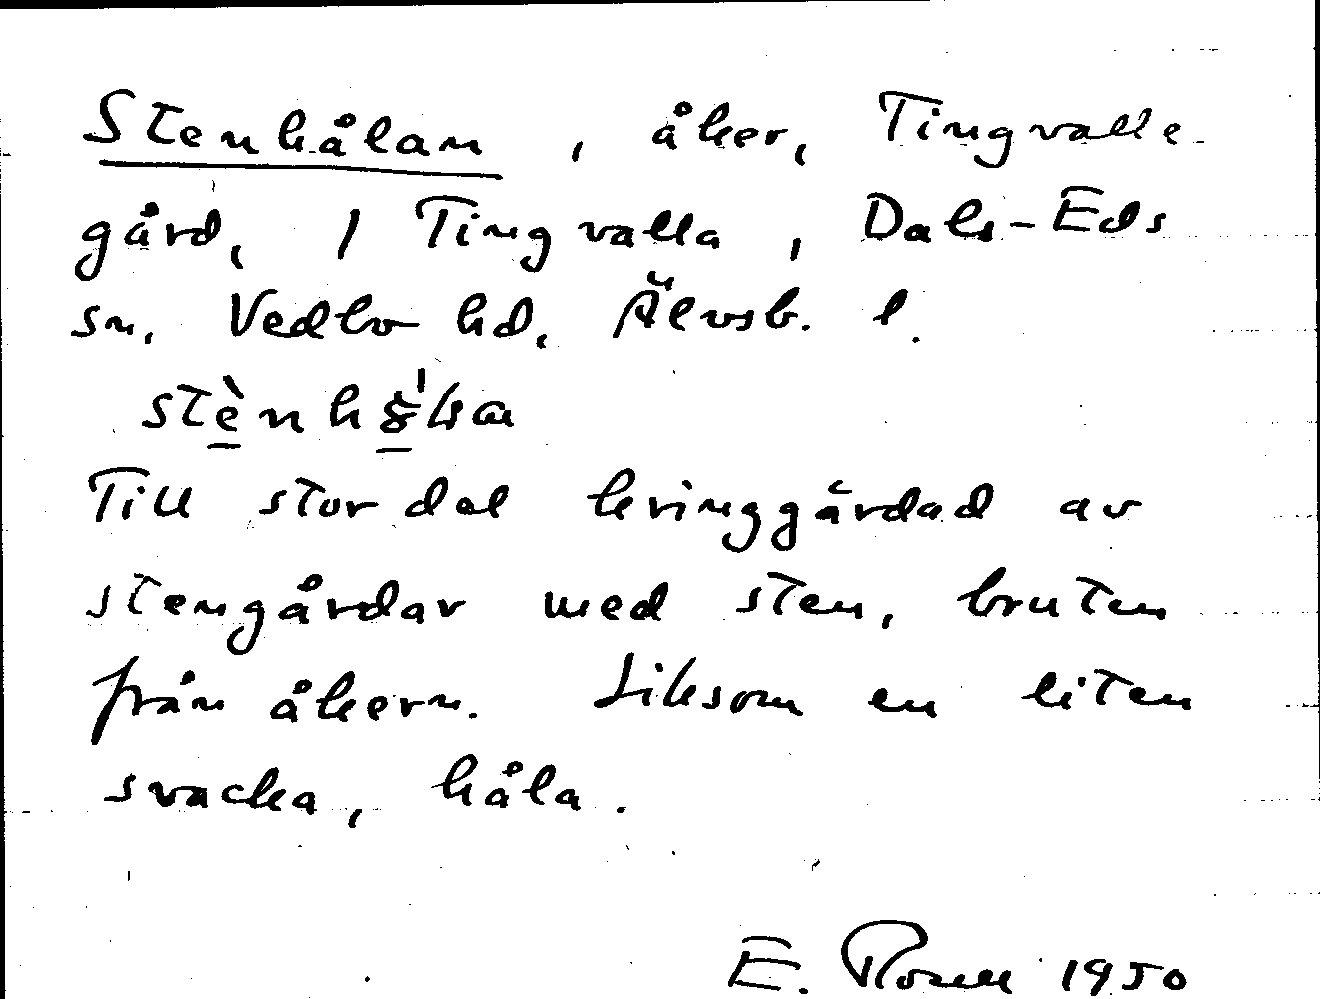 Stenhålan, åker, Tingvalle
gård, / Tingvalla, Dals-Eds
sn, Vedbo hd, Älvsb. l.
Till stor del kringgärdad av
stengårdar med sten, bruten
från åkern. Liksom en liten
svacka, håla.
E. Rosell 1950